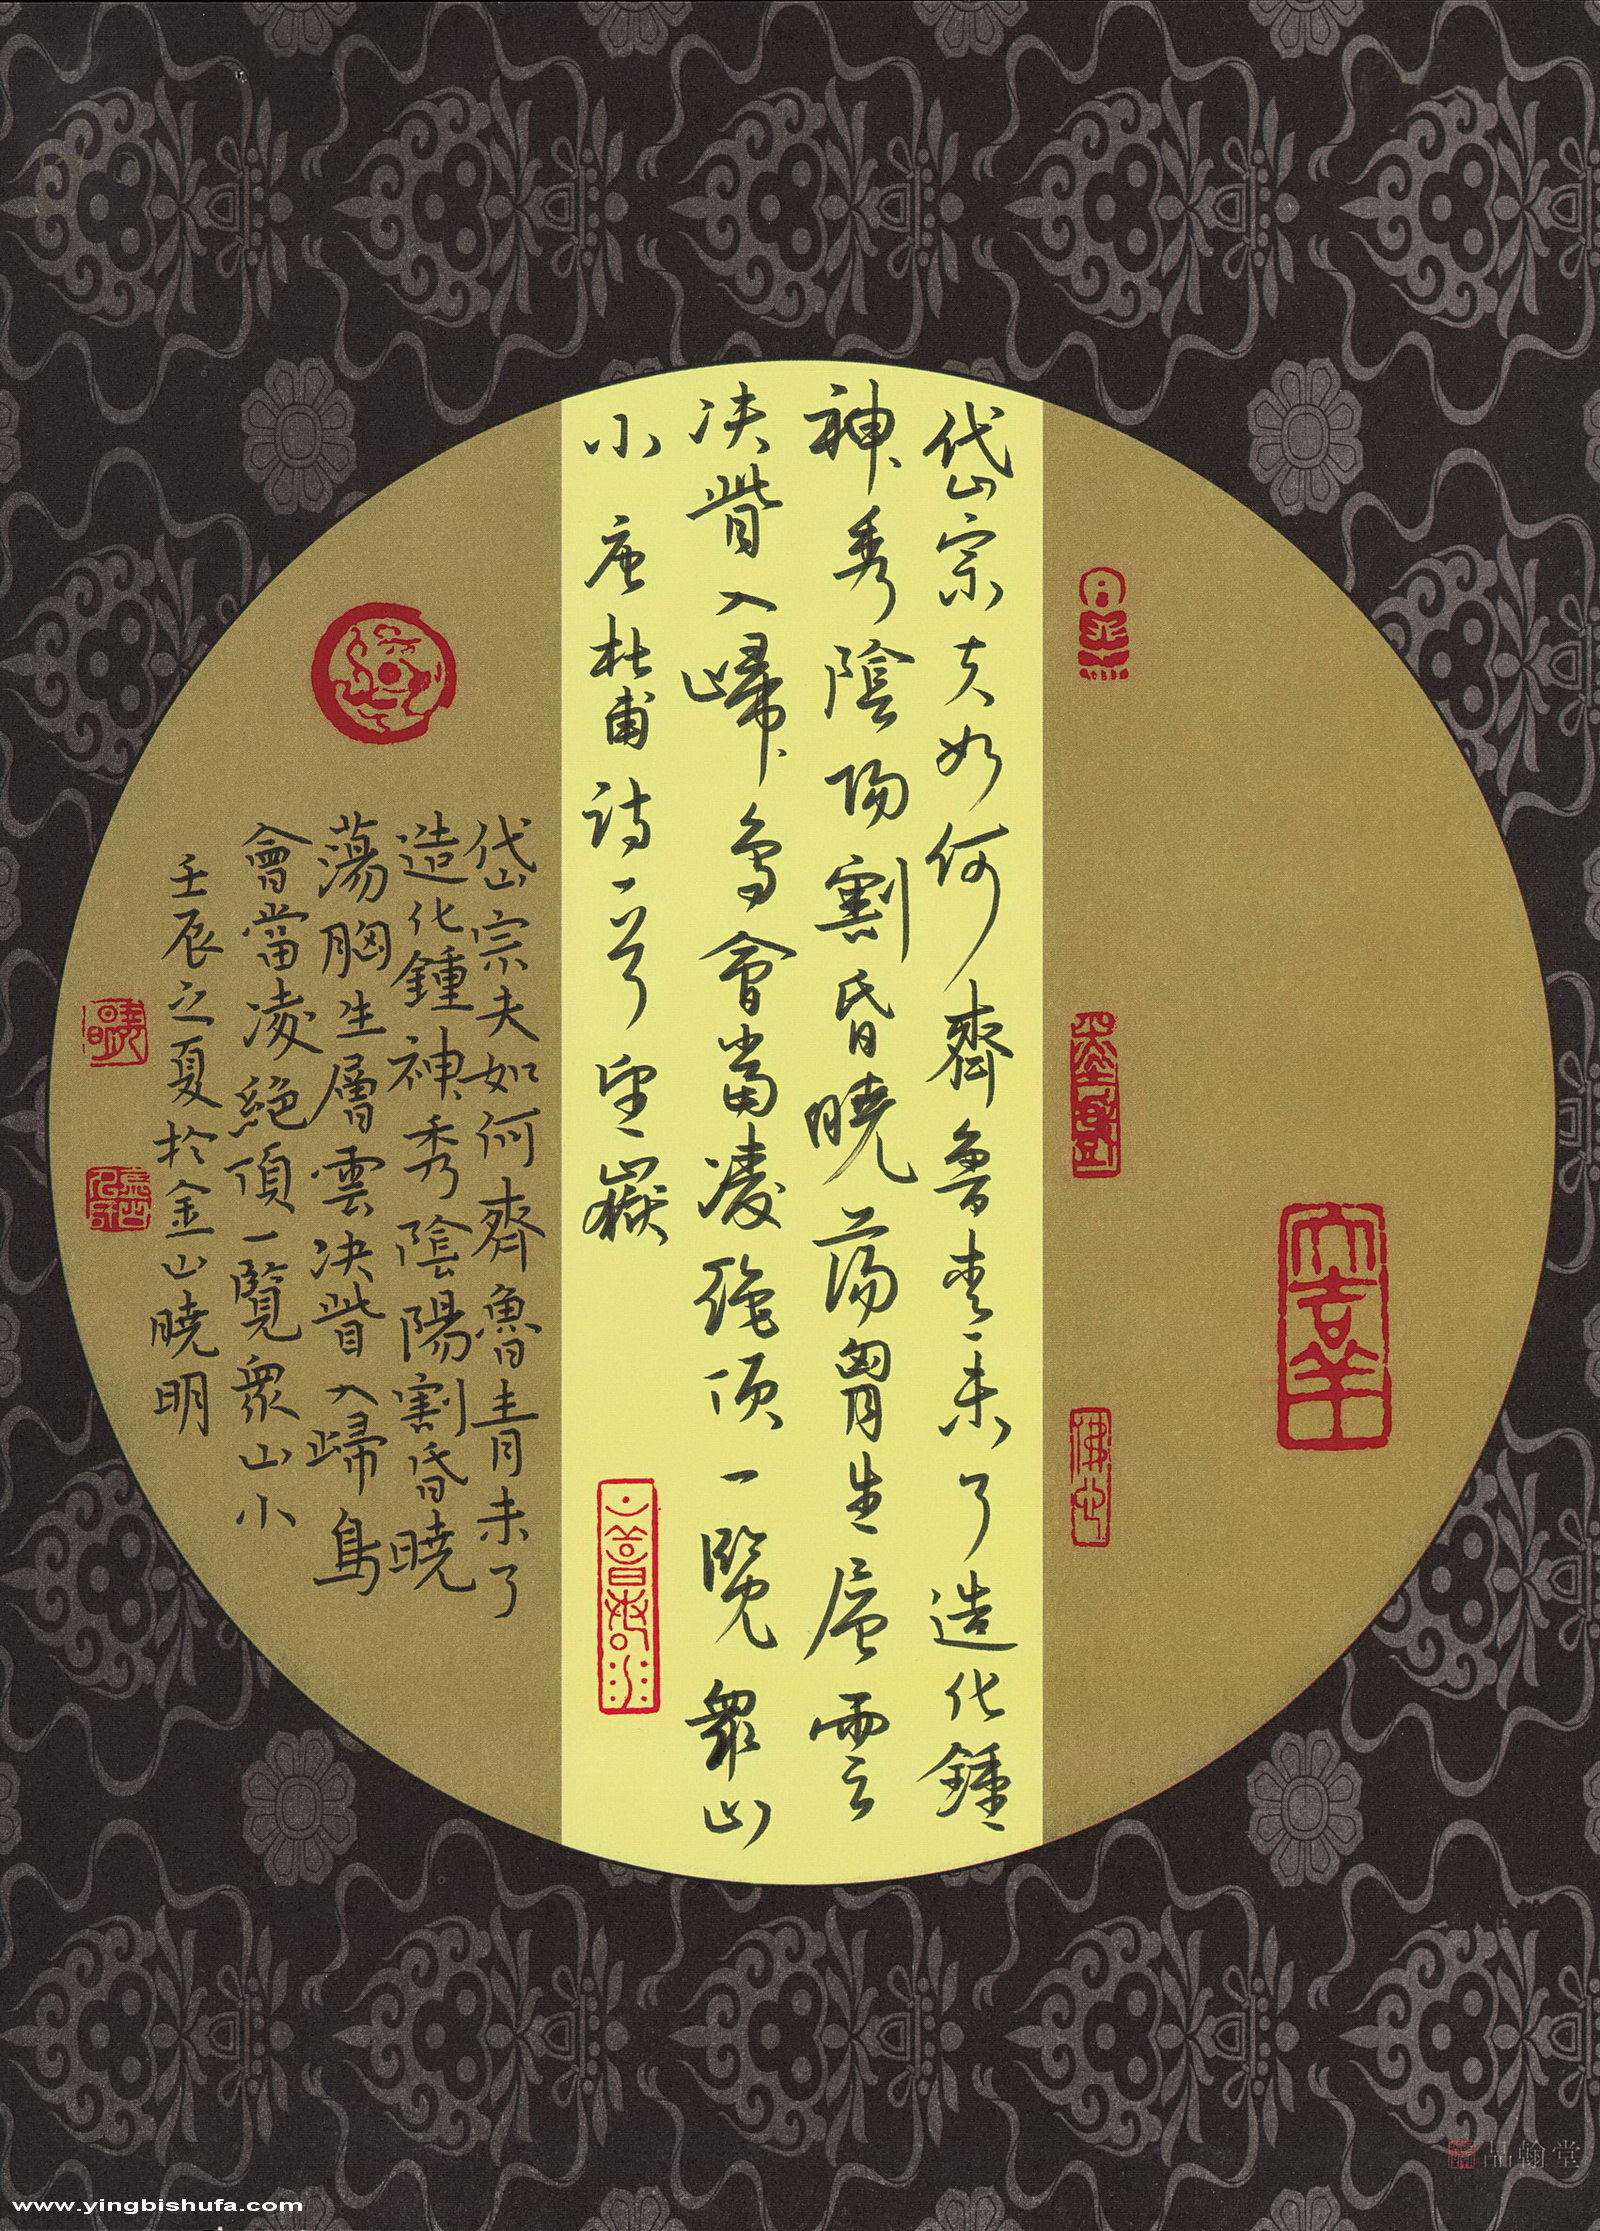 岱宗夫如何齊魯青未了造化鍾
神秀陰陽割昏曉蕩胷生層雲
决眥入歸鳥會當凌絕頂一覽衆山
小 唐杜甫詩一首望嶽
岱宗夫如何齊魯青未了
造化鍾神秀陰陽割昏曉
蕩胸生層雲决眥入歸鳥
會當凌絕頂一覽衆山小
壬辰之夏於金山曉明
大吉羊
佛心
品翰堂
www.yingbishufa.com